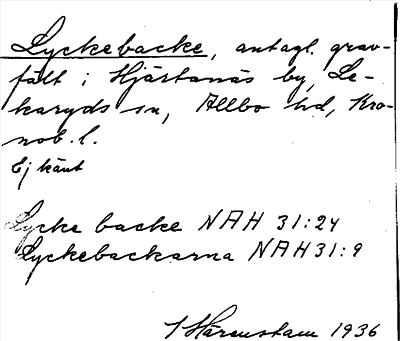 Lyckebacke, antagl. grav-
fält i Hjärtanäs by, Le-
karyds sn, Allbo hd, Kro-
nob. l.
Ej känt
Lycke backe NAH 31:24
Lyckebackarna NAH 31:9
I Härenstam 1936